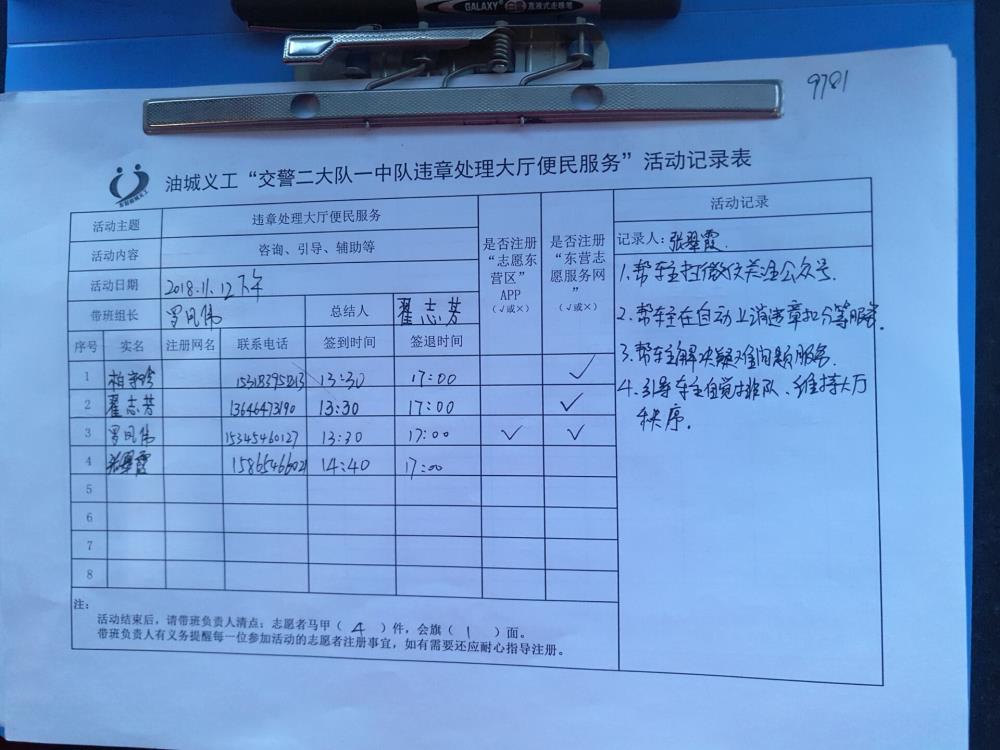 GALAXY
9781
油城义工“交警二大队一中队违章处理大厅便民服务”活动记录表
活动主题 违章处理大厅便民服务
活动内容 咨询、引导、辅助等
活动日期 2018.11.12下午
带班组长 罗凤伟 总结人 翟志芳
是否注册“志愿东营区”APP（√或×）
是否注册“东营志愿服务网”（√或×）
序号 实名 注册网名 联系电话 签到时间 签退时间
1 13:30 17:00 √
2 翟志芳 13646473190 13:30 17:00 √
3 罗凤伟 15345460127 13:30 17:00 √ √
4 张翠霞 15865466021 14:40 17:00
5
6
7
8
注：
活动结束后，请带班负责人清点：志愿者马甲（ 4 ）件，会旗（ 1 ）面。
带班负责人有义务提醒每一位参加活动的志愿者注册事宜，如有需要还应耐心指导注册。
活动记录
记录人：张翠霞.
1.帮车主扫微信关注公众号.
2.帮车主在自动上消违章扣分等服务.
3.帮车主解决疑难问题服务.
4.引导车主自觉排队、维持大厅
秩序.